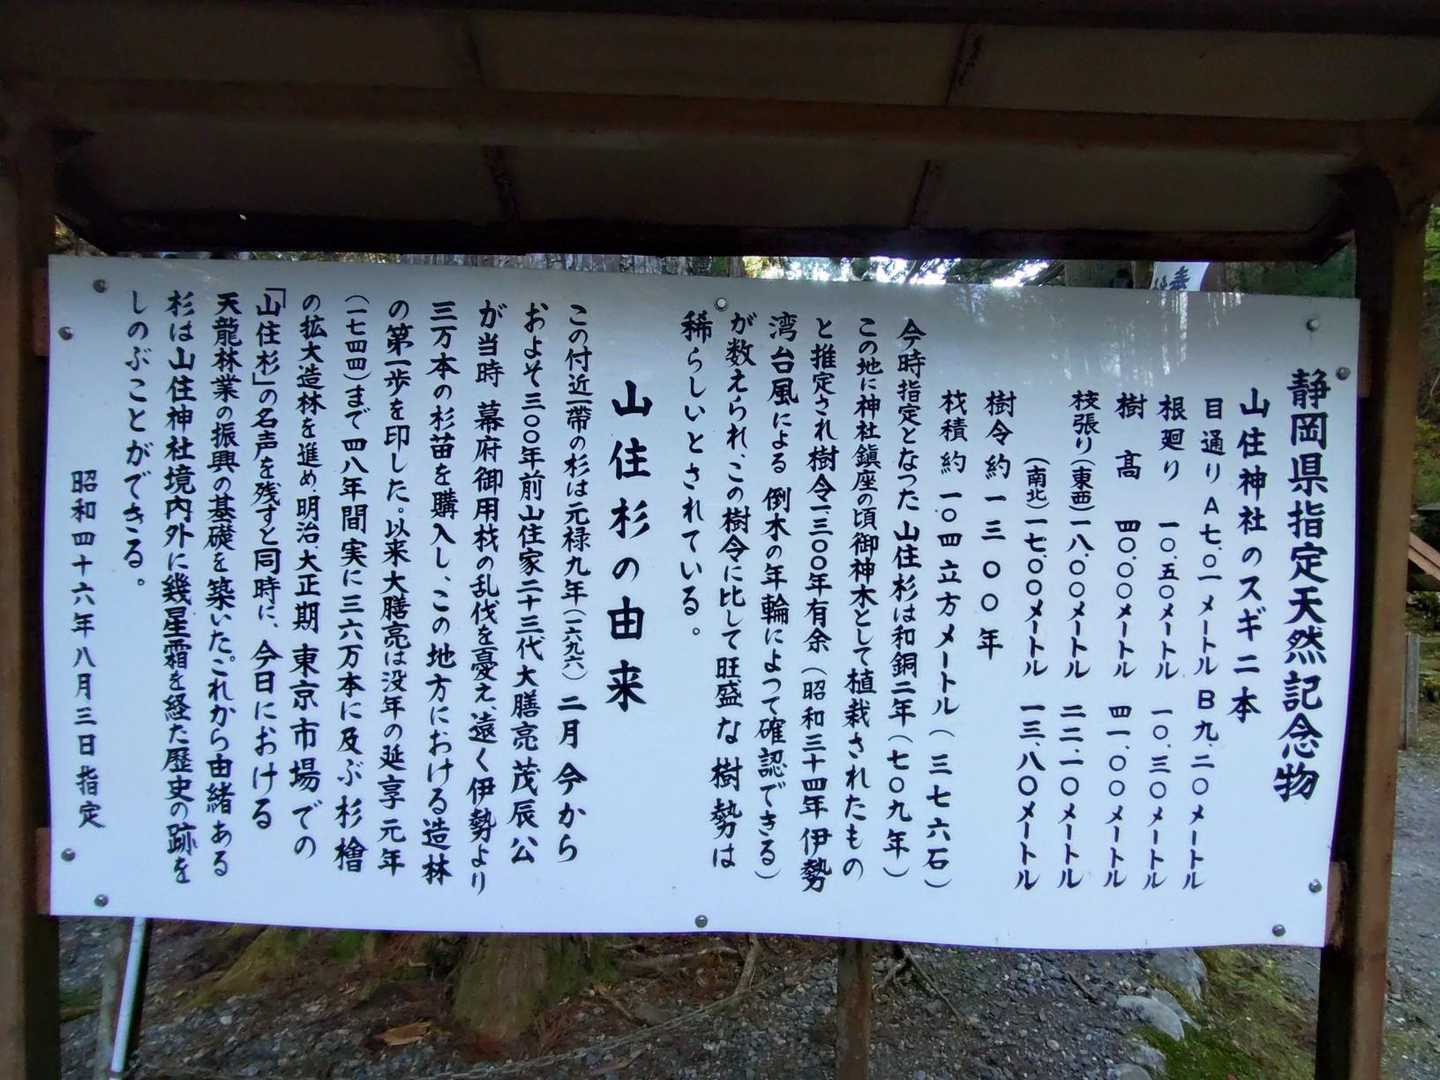 静岡県指定天然記念物
山住神社のスギ二本
目通り A 七.〇一メートル B 九.二〇メートル
根廻り 一〇.五〇メートル 一〇.三〇メートル
樹高 四〇.〇〇メートル 四一.〇〇メートル
枝張り(東西)一八.〇〇メートル 二二.一〇メートル
(南北)一七.〇〇メートル 一三.八〇メートル
樹令約一三〇〇年
材積約一〇四立方メートル(三七六石)
今時指定となった山住杉は和銅二年(七〇九年)
この地に神社鎮座の頃御神木として植栽されたもの
と推定され樹令一三〇〇年有余(昭和三十四年伊勢
湾台風による倒木の年輪によって確認できる)
が数えられ、この樹令に比して旺盛な樹勢は
稀らしいとされている。
山住杉の由来
この付近一帯の杉は元禄九年(一六九六)二月今から
およそ三〇〇年前山住家二十三代大膳亮茂辰公
が当時幕府御用材の乱伐を憂え、遠く伊勢より
三万本の杉苗を購入し、この地方における造林
の第一歩を印した。以来大膳亮は没年の延享元年
(一七四四)まで四八年間実に三六万本に及ぶ杉檜
の拡大造林を進め、明治、大正期東京市場での
「山住杉」の名声を残すと同時に、今日における
天龍林業の振興の基礎を築いた。これから由緒ある
杉は山住神社境内外に幾星霜を経た歴史の跡を
しのぶことができる。
昭和四十六年八月三日指定